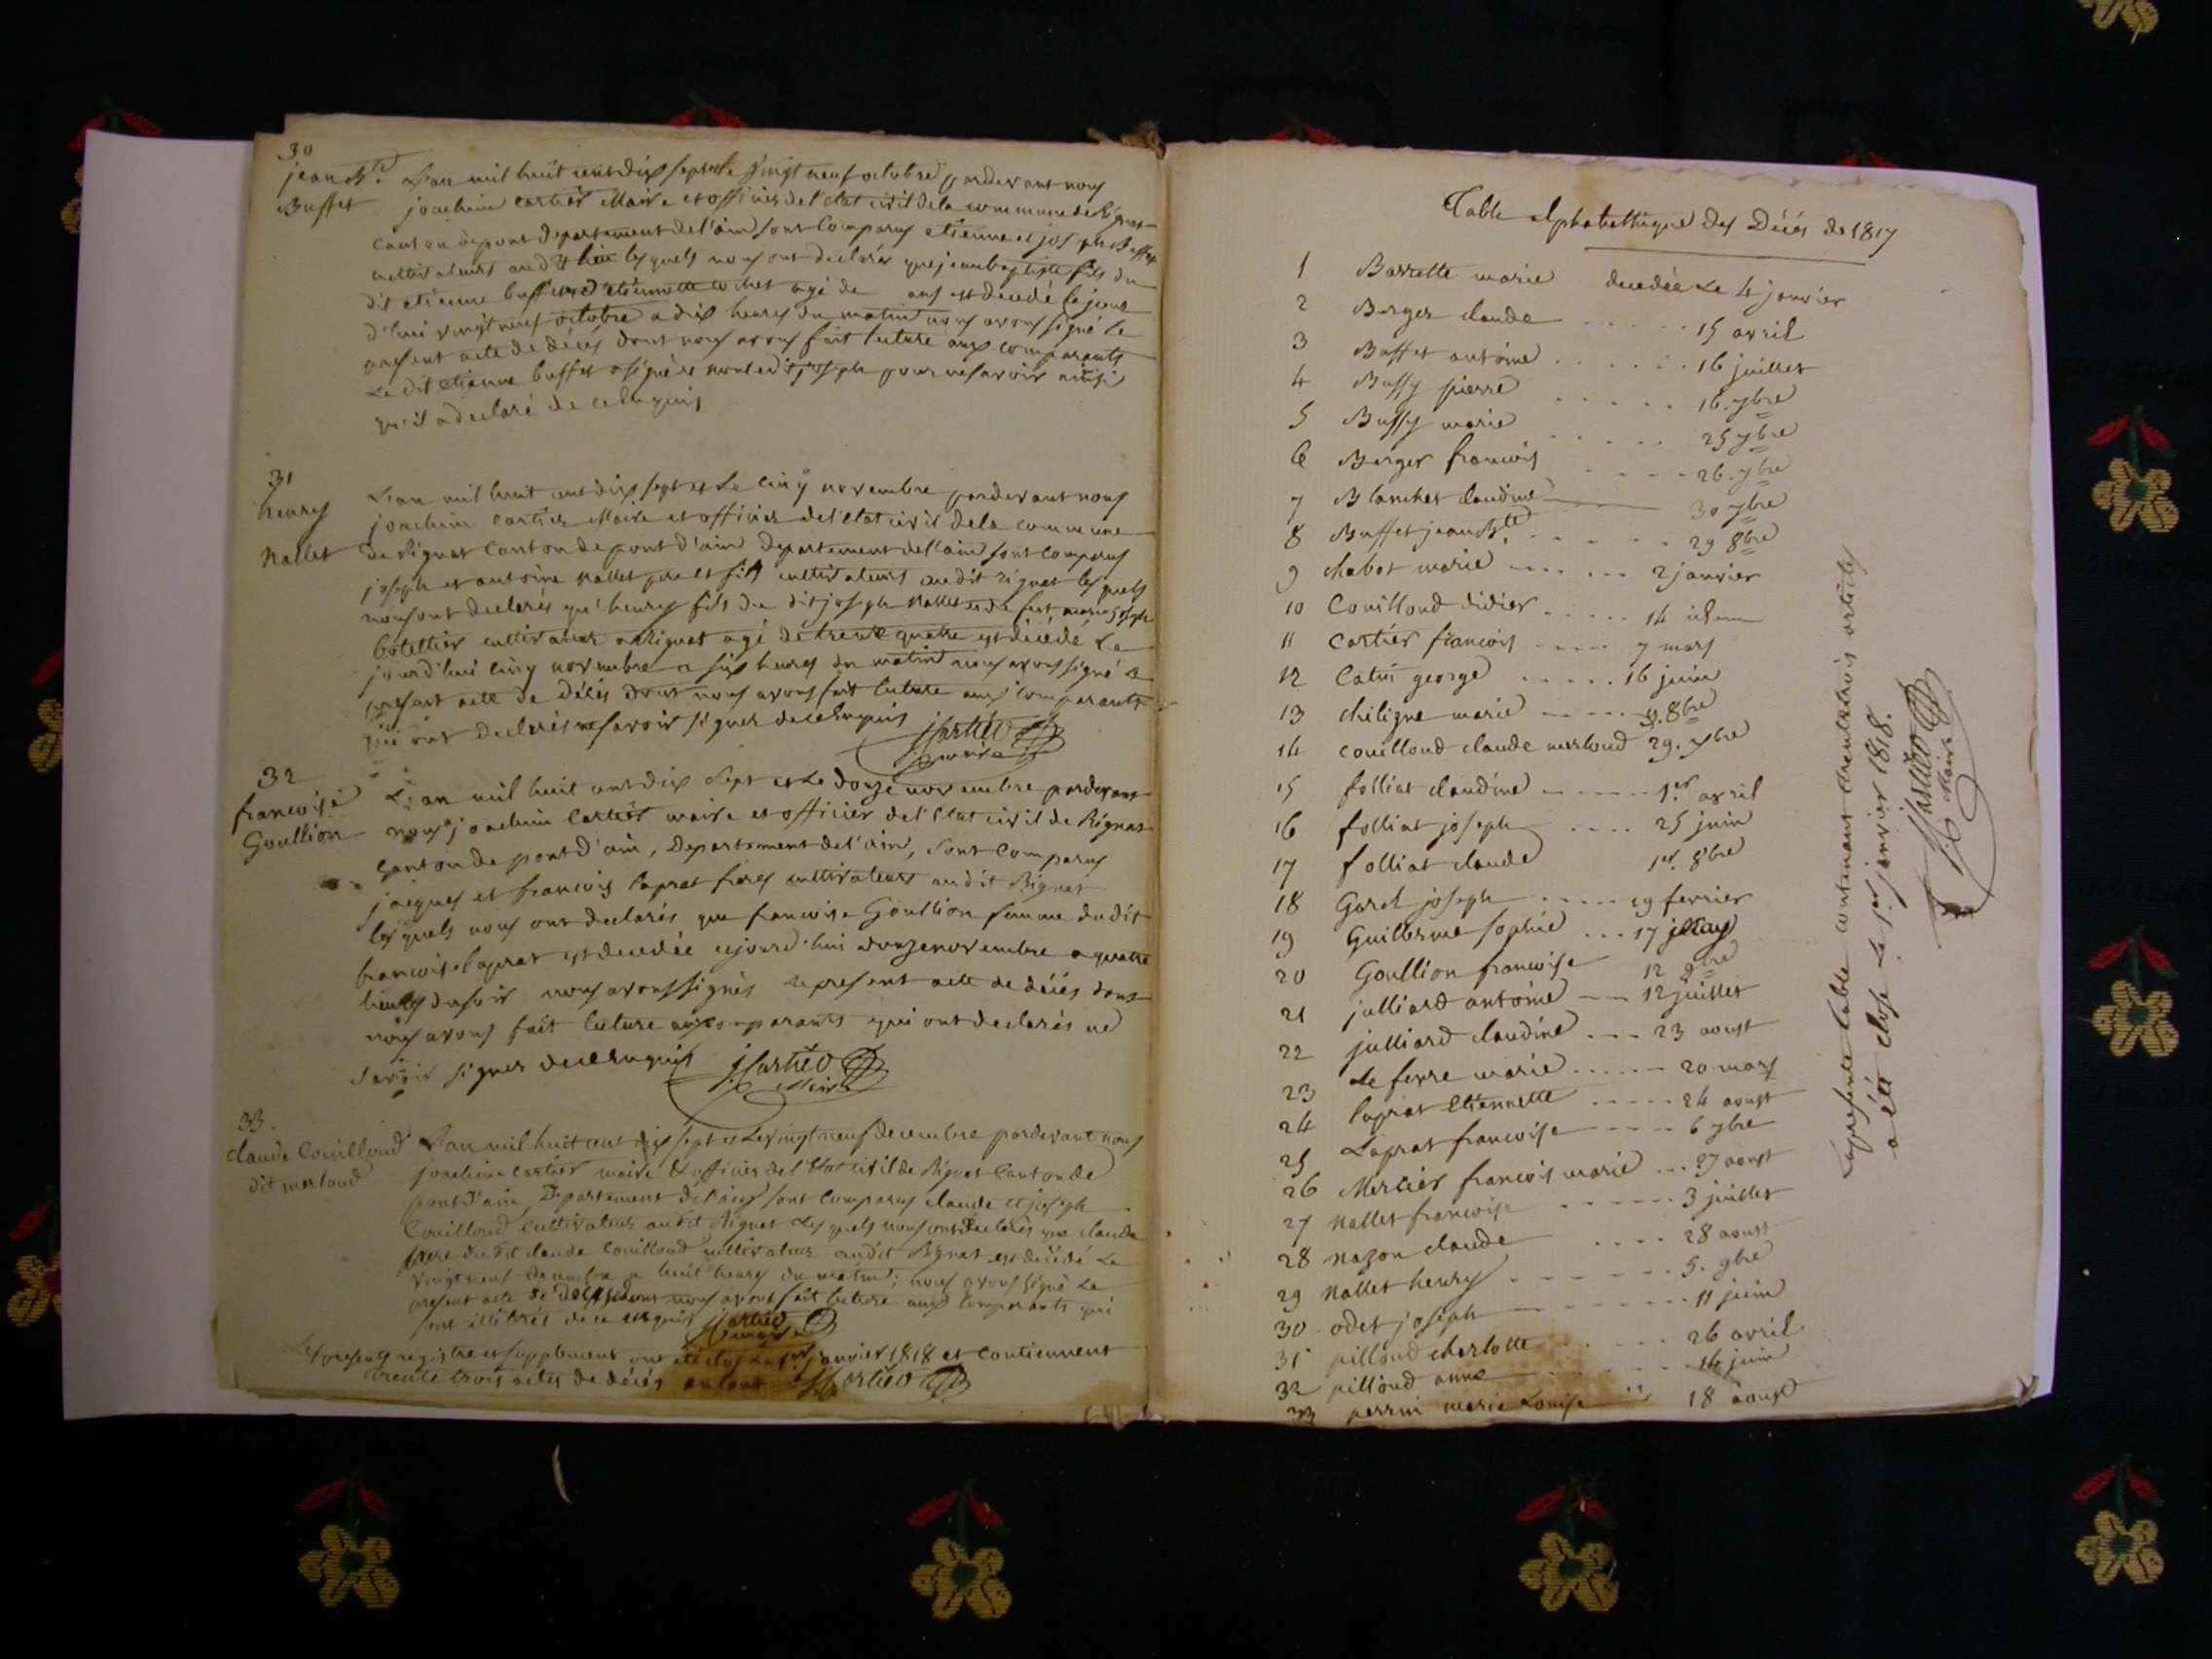 30
jean Bte
Buffet
L'an mil huit cent dix sept et le vingt neuf octobre pardevant nous
joachim cartier Maire et officier de l'etat civil de la commune de Rignat
canton de pont departement de l'ain sont comparus etienne et joseph Buffet
cultivateurs audit lieu lesquels nous ont declarés que jean baptiste fils du
dit etienne buffet et d'etiennette cochet agé de ans est decedé cejour
d'hui vingt neuf octobre a dix heures du matin nous avons signé le
present acte de décés dont nous avons fait lecture aux comparants
Le dit etienne buffet a signé et non ledit joseph pour ne savoir ainsi
qu'il a declaré de ce enquis
31
henry
Nallet
L'an mil huit cent dix sept et Le cinq novembre pardevant nous
joachim cartier Maire et officier de l'etat civil de la commune
de Rignat Canton de pont d'ain Departement de l'ain sont comparus
joseph et antoine Nallet pere et fils cultivateurs audit Rignat lesquels
nous ont declarés qu'henry fils du dit joseph Nallet et de fut marie joseph
botettier cultivateur a Rignat agé de trente quatre est décédé Le
jourd'hui cinq novembre a six heures du matin nous avons signé le
present acte de Décés dont nous avons fait lecture aux comparants
qui ont declarés ne savoir signer de ce enquis jCartier
maire
32
francoise
Goullion
L'an mil huit cent dix Sept et Le douze novembre pardevant
nous joachim Cartier maire et officier de l'Etat civil de Rignat
Canton de pont d'ain, Departement de l'ain, Sont Comparus
jacques et francois laprat freres cultivateurs audit Rignat
lesquels nous ont declarés que francoise Goullion femme dudit
francois laprat est decedée cejourd'hui douze novembre a quatre
heures du soir nous avons signés le present acte de décés dont
nous avons fait lecture aux comparants qui ont declarés ne
Savoir signer de ce enquis jCartier
Maire
33.
claude Couilloud
dit merloud
L'an mil huit cent dix sept et Le vingt neuf decembre pardevant nous
joachim cartier maire & officier de l'Etat civil de Rignat Canton de
pont d'ain, Departement de l'ain sont comparus claude et joseph
Couilloud Cultivateurs audit Rignat Lesquels nous ont declarés que claude
pere dudit claude Couilloud cultivateur audit Rignat est décédé Le
vingt neuf decembre a huit heures du matin; nous avons signé Le
present acte de Décés dont nous avons fait lecture aux comparants qui
sont illitérés de ce enquis jCartier
maire
Les presents registre et supplement ont été clos au 1er janvier 1818 et contiennent
trente trois actes de décés en tout jCartier
Table alphabettique des Décés de 1817
1 Barrette marie decedée Le 4 janvier
2 Berger claude ..... 15 avril
3 Buffet antoine ...... 16 juillet
4 Buffy pierre ..... 16. 7bre
5 Buffy marie ..... 25 7bre
6 Berger francois .... 26. 7bre
7 Blanchet claudine 30 7bre
8 Buffet jean Bte ...... 29 8bre
9 chabot marie ....... 2 janvier
10 Couilloud didier ..... 14 idem
11 Cartier francois .... 7 mars
12 Catin george ..... 16 juin
13 chiligne marie ..... 9. 8bre
14 couilloud claude merloud 29. xbre
15 folliat claudine ..... 1er avril
16 folliat joseph .... 25 juin
17 folliat claude 1er. 8bre
18 Garel joseph ..... 19 fevrier
19 Guillerme sophie ... 17 May
20 Goullion francoise 12 9bre
21 julliard antoine -- 12 juillet
22 julliard claudine --- 23 aoust
23 Le ferre marie ...... 20 mars
24 laprat Etiennette ..... 24 aoust
25 Laprat francoise .... 6 7bre
26 Mercier francois marie ... 27 aoust
27 Nallet francoise ...... 3 juillet
28 Nazon claude .... 28 aoust
29 Nallet henry ....... 5. 9bre
30 odet joseph ....... 11 juin
31 pilloud charlotte ..... 26 avril
32 pilloud anne ..... 14 juin
33 perrin marie Louise 18 aoust
La presente table contenant trente trois articles
a été close Le 1er janvier 1818.
jCartier
Maire